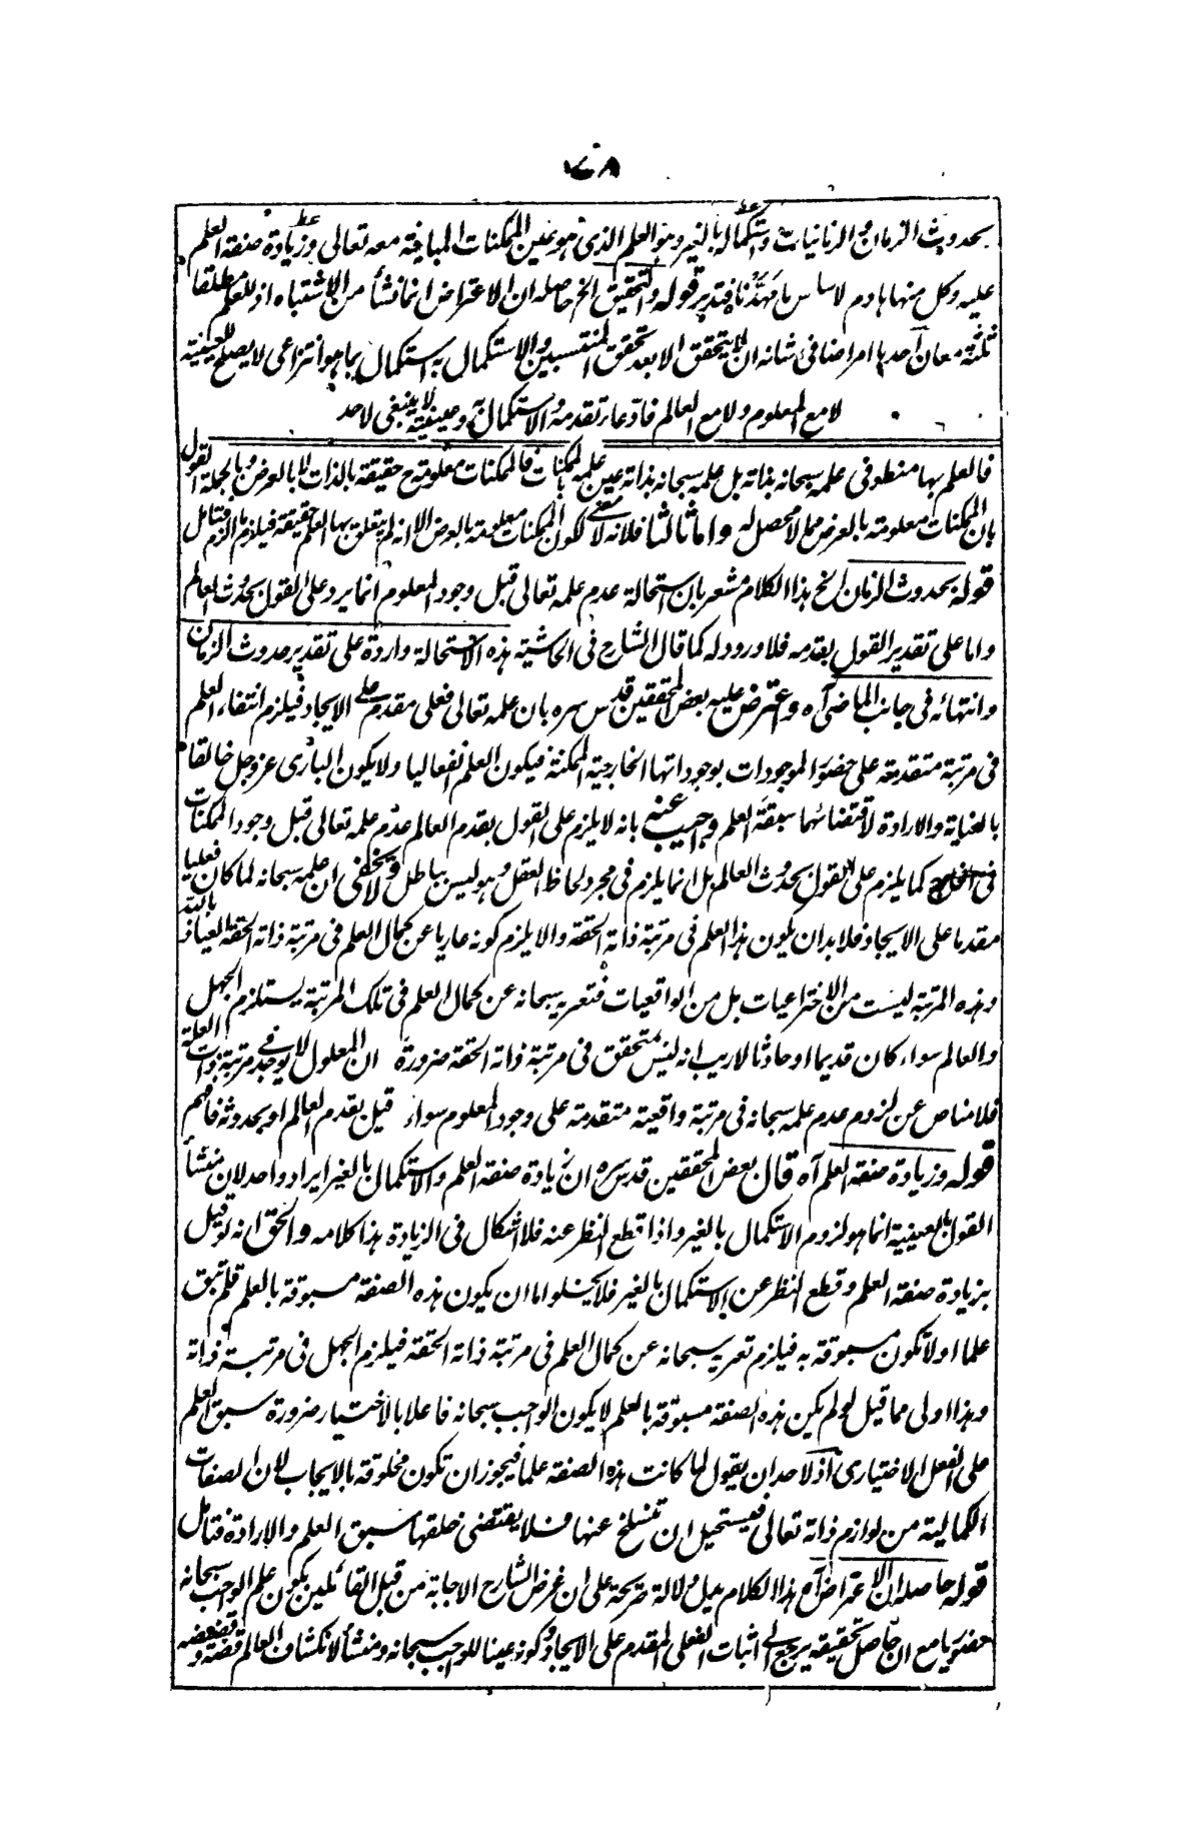 ٧٨
بحدوث الزمان والزمانيات واستكماله بالغير وهو العلم الذي هو عين الممكنات المباينة معه تعالى وزيادة صفة العلم
عليه وكل منها هادم لاساس ما مهدنا فتدبر قوله والتحقيق الخ حاصله ان الاعتراض انما نشأ من الاشتباه اذ للعلم مطلقا
ثلثة معان احدها امر اضافي شانه ان لا يتحقق الا بعد تحقق المنتسبين والاستكمال به استكمال بما هو انتزاعي لا يصلح للعينية
لا مع المعلوم ولا مع العالم فادعاء تقدمه والاستكمال به وعينيته لا ينبغي لاحد
فالعلم بها منطو في علمه سبحانه بذاته بل علمه سبحانه بذاته عين علمه بالممكنات فالممكنات معلومة ح حقيقة بالذات لا بالعرض وبالجملة القول
بان الممكنات معلومة بالعرض مما لا محصل له واما ثالثا فلانه لا معنى لكون الممكنات معلومة بالعرض الا انه لم يتعلق بها العلم حقيقة فيلزم ما لزم فتامل
قوله بحدوث الزمان الخ هذا الكلام مشعر بان استحالة عدم علمه تعالى قبل وجود المعلوم انما يرد على القول بحدوث العالم
واما على تقدير القول بقدمه فلا ورود له كما قال الشارح في الحاشية هذه الاستحالة واردة على تقدير حدوث الزمان
وانتهائه في جانب الماضي آه واعترض عليه بعض المحققين قدس سره بان علمه تعالى فعلي مقدم على الايجاد فيلزم انتفاء العلم
في مرتبة متقدمة على حضور الموجودات بوجوداتها الخارجية الممكنة فيكون العلم انفعاليا ولا يكون البارى عز وجل خالقا
بالعناية والارادة لاقتضائهما سبقة العلم واجيب عنه بانه لا يلزم على القول بقدم العالم عدم علمه تعالى قبل وجود الممكنات
في الخارج كما يلزم على القول بحدوث العالم بل انما يلزم في مجرد لحاظ العقل وهو ليس بباطل ولا يخفى ان علمه سبحانه لما كان فعليا
مقدما على الايجاد فلا بد ان يكون هذا العلم في مرتبة ذاته الحقة والا يلزم كونه عاريا عن كمال العلم في مرتبة ذاته الحقة العياذ بالله
وهذه المرتبة ليست من الاختراعيات بل من الواقعيات فتعريه سبحانه عن كمال العلم في تلك المرتبة يستلزم الجهل
والعالم سواء كان قديما او حادثا لا ريب انه ليس متحقق في مرتبة ذاته الحقة ضرورة ان المعلول لا يوجد في مرتبة ذات العلة
فلا مناص عن لزوم عدم علمه سبحانه في مرتبة واقعية متقدمة على وجود المعلوم سواء قيل بقدم العالم او بحدوثه فافهم
قوله وزيادة صفة العلم آه قال بعض المحققين قدس سره ان زيادة صفة العلم والاستكمال بالغير ايراد واحد لان منشأ
القول بالعينية انما هو لزوم الاستكمال بالغير واذا قطع النظر عنه فلا اشكال في الزيادة هذا كلامه والحق انه لو قيل
بزيادة صفة العلم وقطع النظر عن الاستكمال بالغير فلا يخلو اما ان يكون هذه الصفة مسبوقة بالعلم فلم تبق
علما او لا تكون مسبوقة به فيلزم تعريه سبحانه عن كمال العلم في مرتبة ذاته الحقة فيلزم الجهل في مرتبة ذاته
وهذا اولى مما قيل لو لم يكن هذه الصفة مسبوقة بالعلم لا يكون الواجب سبحانه فاعلا بالاختيار ضرورة سبق العلم
على الفعل الاختياري اذ لاحد ان يقول لما كانت هذه الصفة علما فيجوز ان تكون مخلوقة بالايجاب لان الصفات
الكمالية من لوازم ذاته تعالى فيستحيل ان تنسلخ عنها فلا يقتضي خلقها سبق العلم والارادة فتامل
قوله حاصله ان الاعتراض آه هذا الكلام يدل دلالة صريحة على ان غرض الشارح الاجابة من قبل القائلين بكون علم الواجب سبحانه
حضوريا مع ان حاصل تحقيقه يرجع الى اثبات الفعلي المقدم على الايجاد وكونه عينا للواجب سبحانه ومنشأ لانكشاف العالم قضه وقضيضه